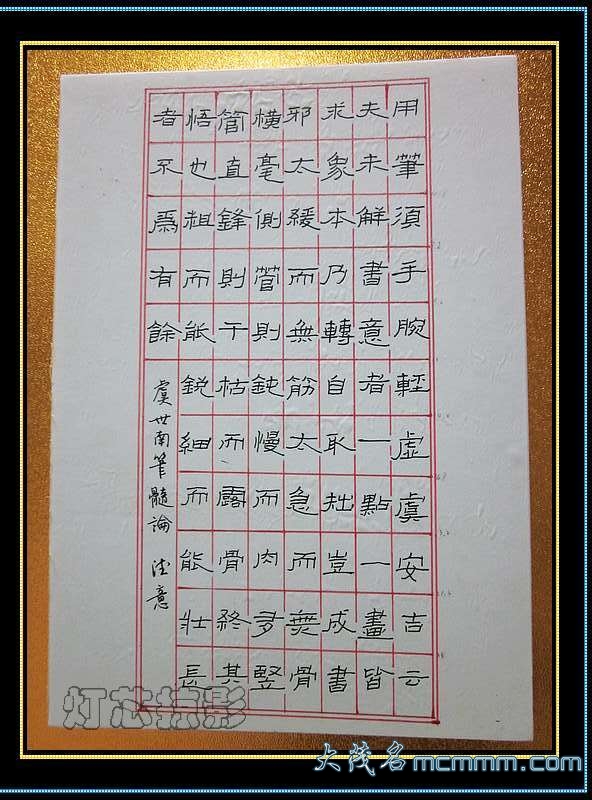 用筆須手腕輕虛虞安吉云
夫未解書意者一點一畫皆
求象本乃轉自取拙豈成書
邪太緩而無筋太急而無骨
橫毫側管則鈍慢而肉多豎
管直鋒則干枯而露骨終其
悟也粗而能鋭細而能壯長
者不爲有餘
虞世南筆髓論 意
灯芯掠影
大茂名mcmmm.com